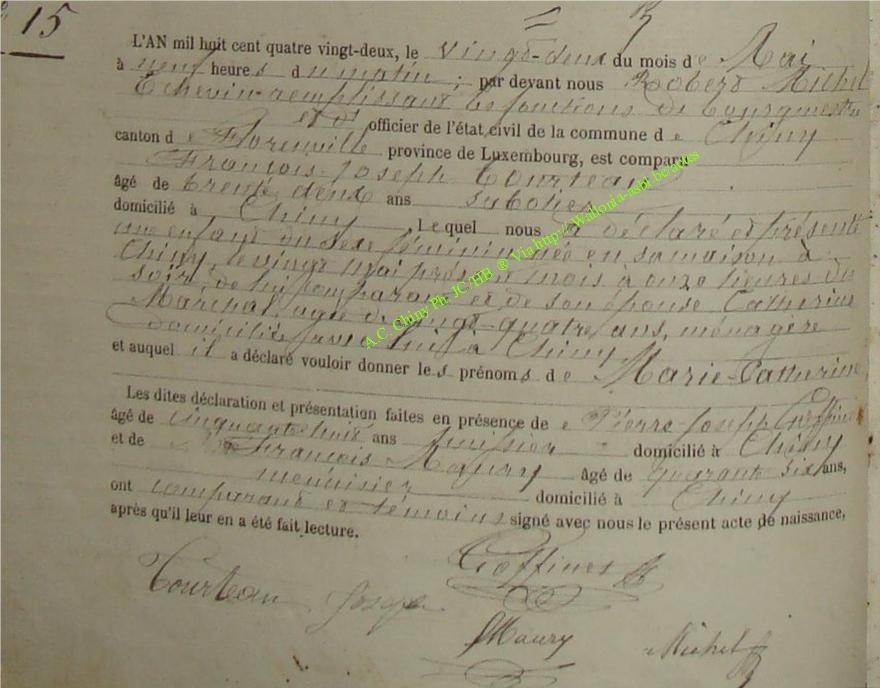 15
L'AN mil huit cent quatre vingt-deux, le vingt-deux du mois de Mai
à neuf heures du matin ; par devant nous Robert Michel
Echevin remplissant les fonctions de bourgmestre
et d' officier de l'état civil de la commune de Chiny
canton de Florenville province de Luxembourg, est comparu
François Joseph Tourteau
âgé de trente deux ans sabotier
domicilié à Chiny Le quel nous a déclaré et présenté
un enfant du sexe féminin née en sa maison à
Chiny le vingt mai présent mois à onze heures du
soir de lui comparant et de son épouse Catherine
Maréchal agée de vingt-quatre ans, ménagère
domiciliée avec lui à Chiny
et auquel il a déclaré vouloir donner les prénoms de Marie-Catherine
Les dites déclaration et présentation faites en présence de Pierre-Joseph Goffinet
âgé de cinquante huit ans domicilié à Chiny
et de François Maury âgé de quarante six ans,
menuisier domicilié à Chiny
ont comparant et témoins signé avec nous le présent acte de naissance,
après qu'il leur en a été fait lecture.
Goffinet
Tourteau Joseph
Maury Michel
A.C. Chiny Ph. JC/HB @ Via http://Wallonia-asbl.be/auss